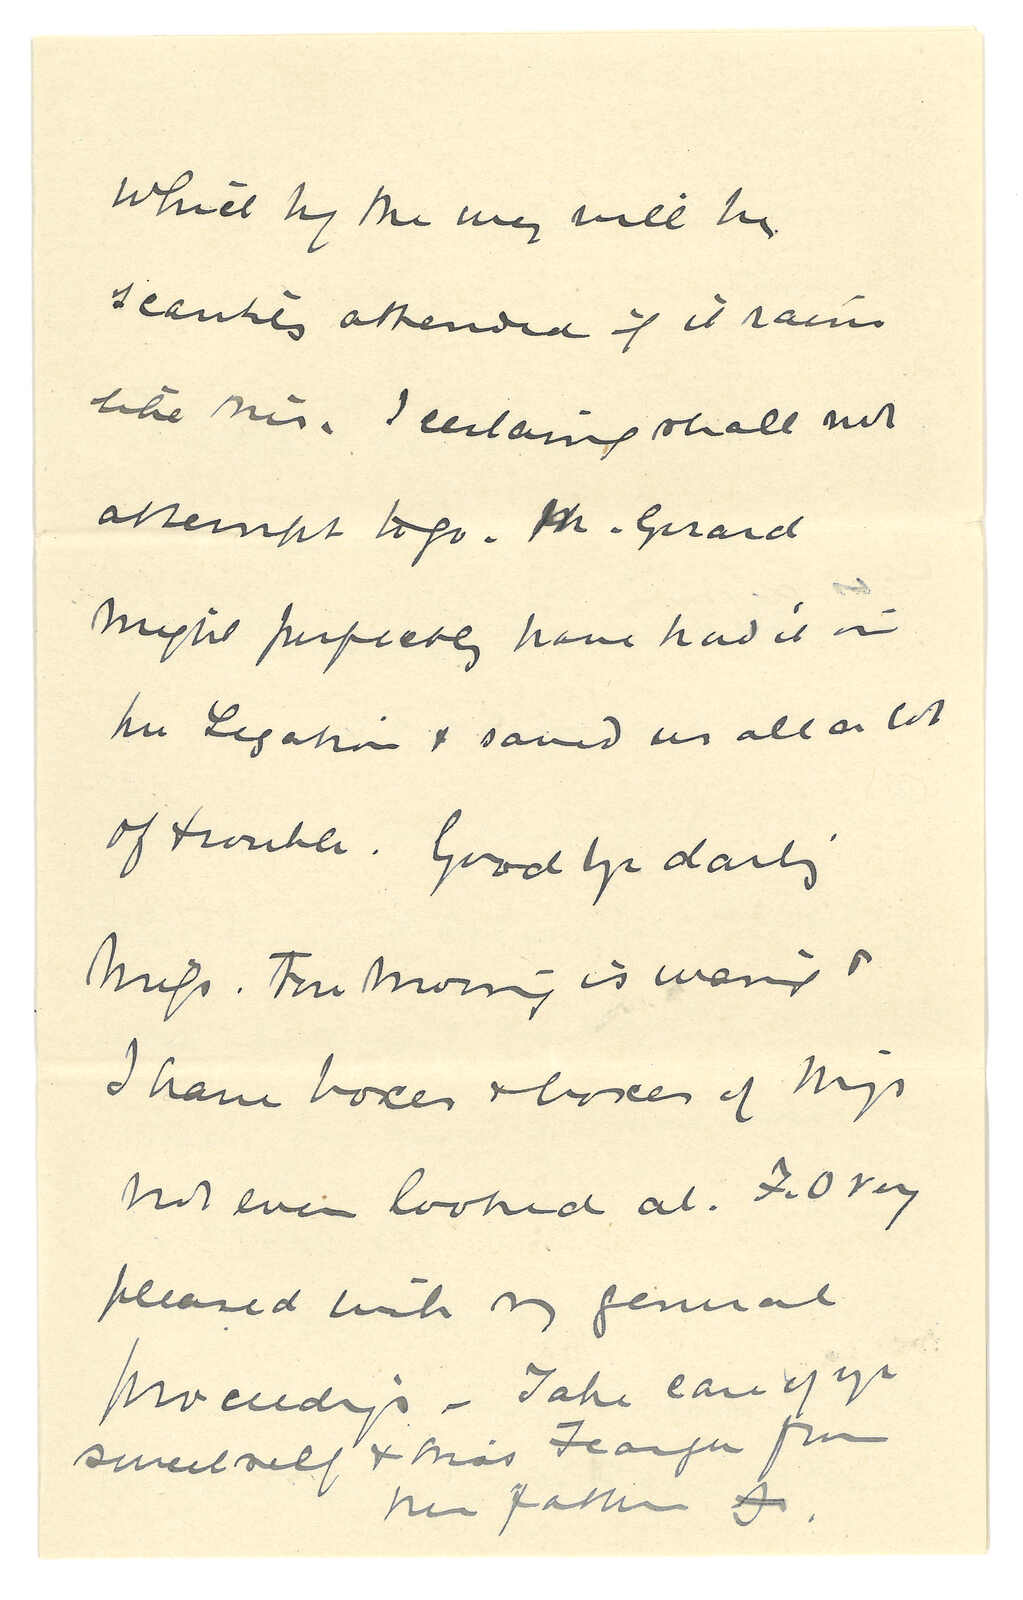 which by the way will be
scantily attended if it rains
like this. I certainly shall not
attempt to go. M. Gerard
might perfectly have had it in
his Legation & saved us all a lot
of trouble. Goodbye darling
Migs. The morning is waning &
I have boxes & boxes of things
not even looked at. F.O very
pleased with my general
proceedings - Take care of yr
sweet self & kiss from
her father